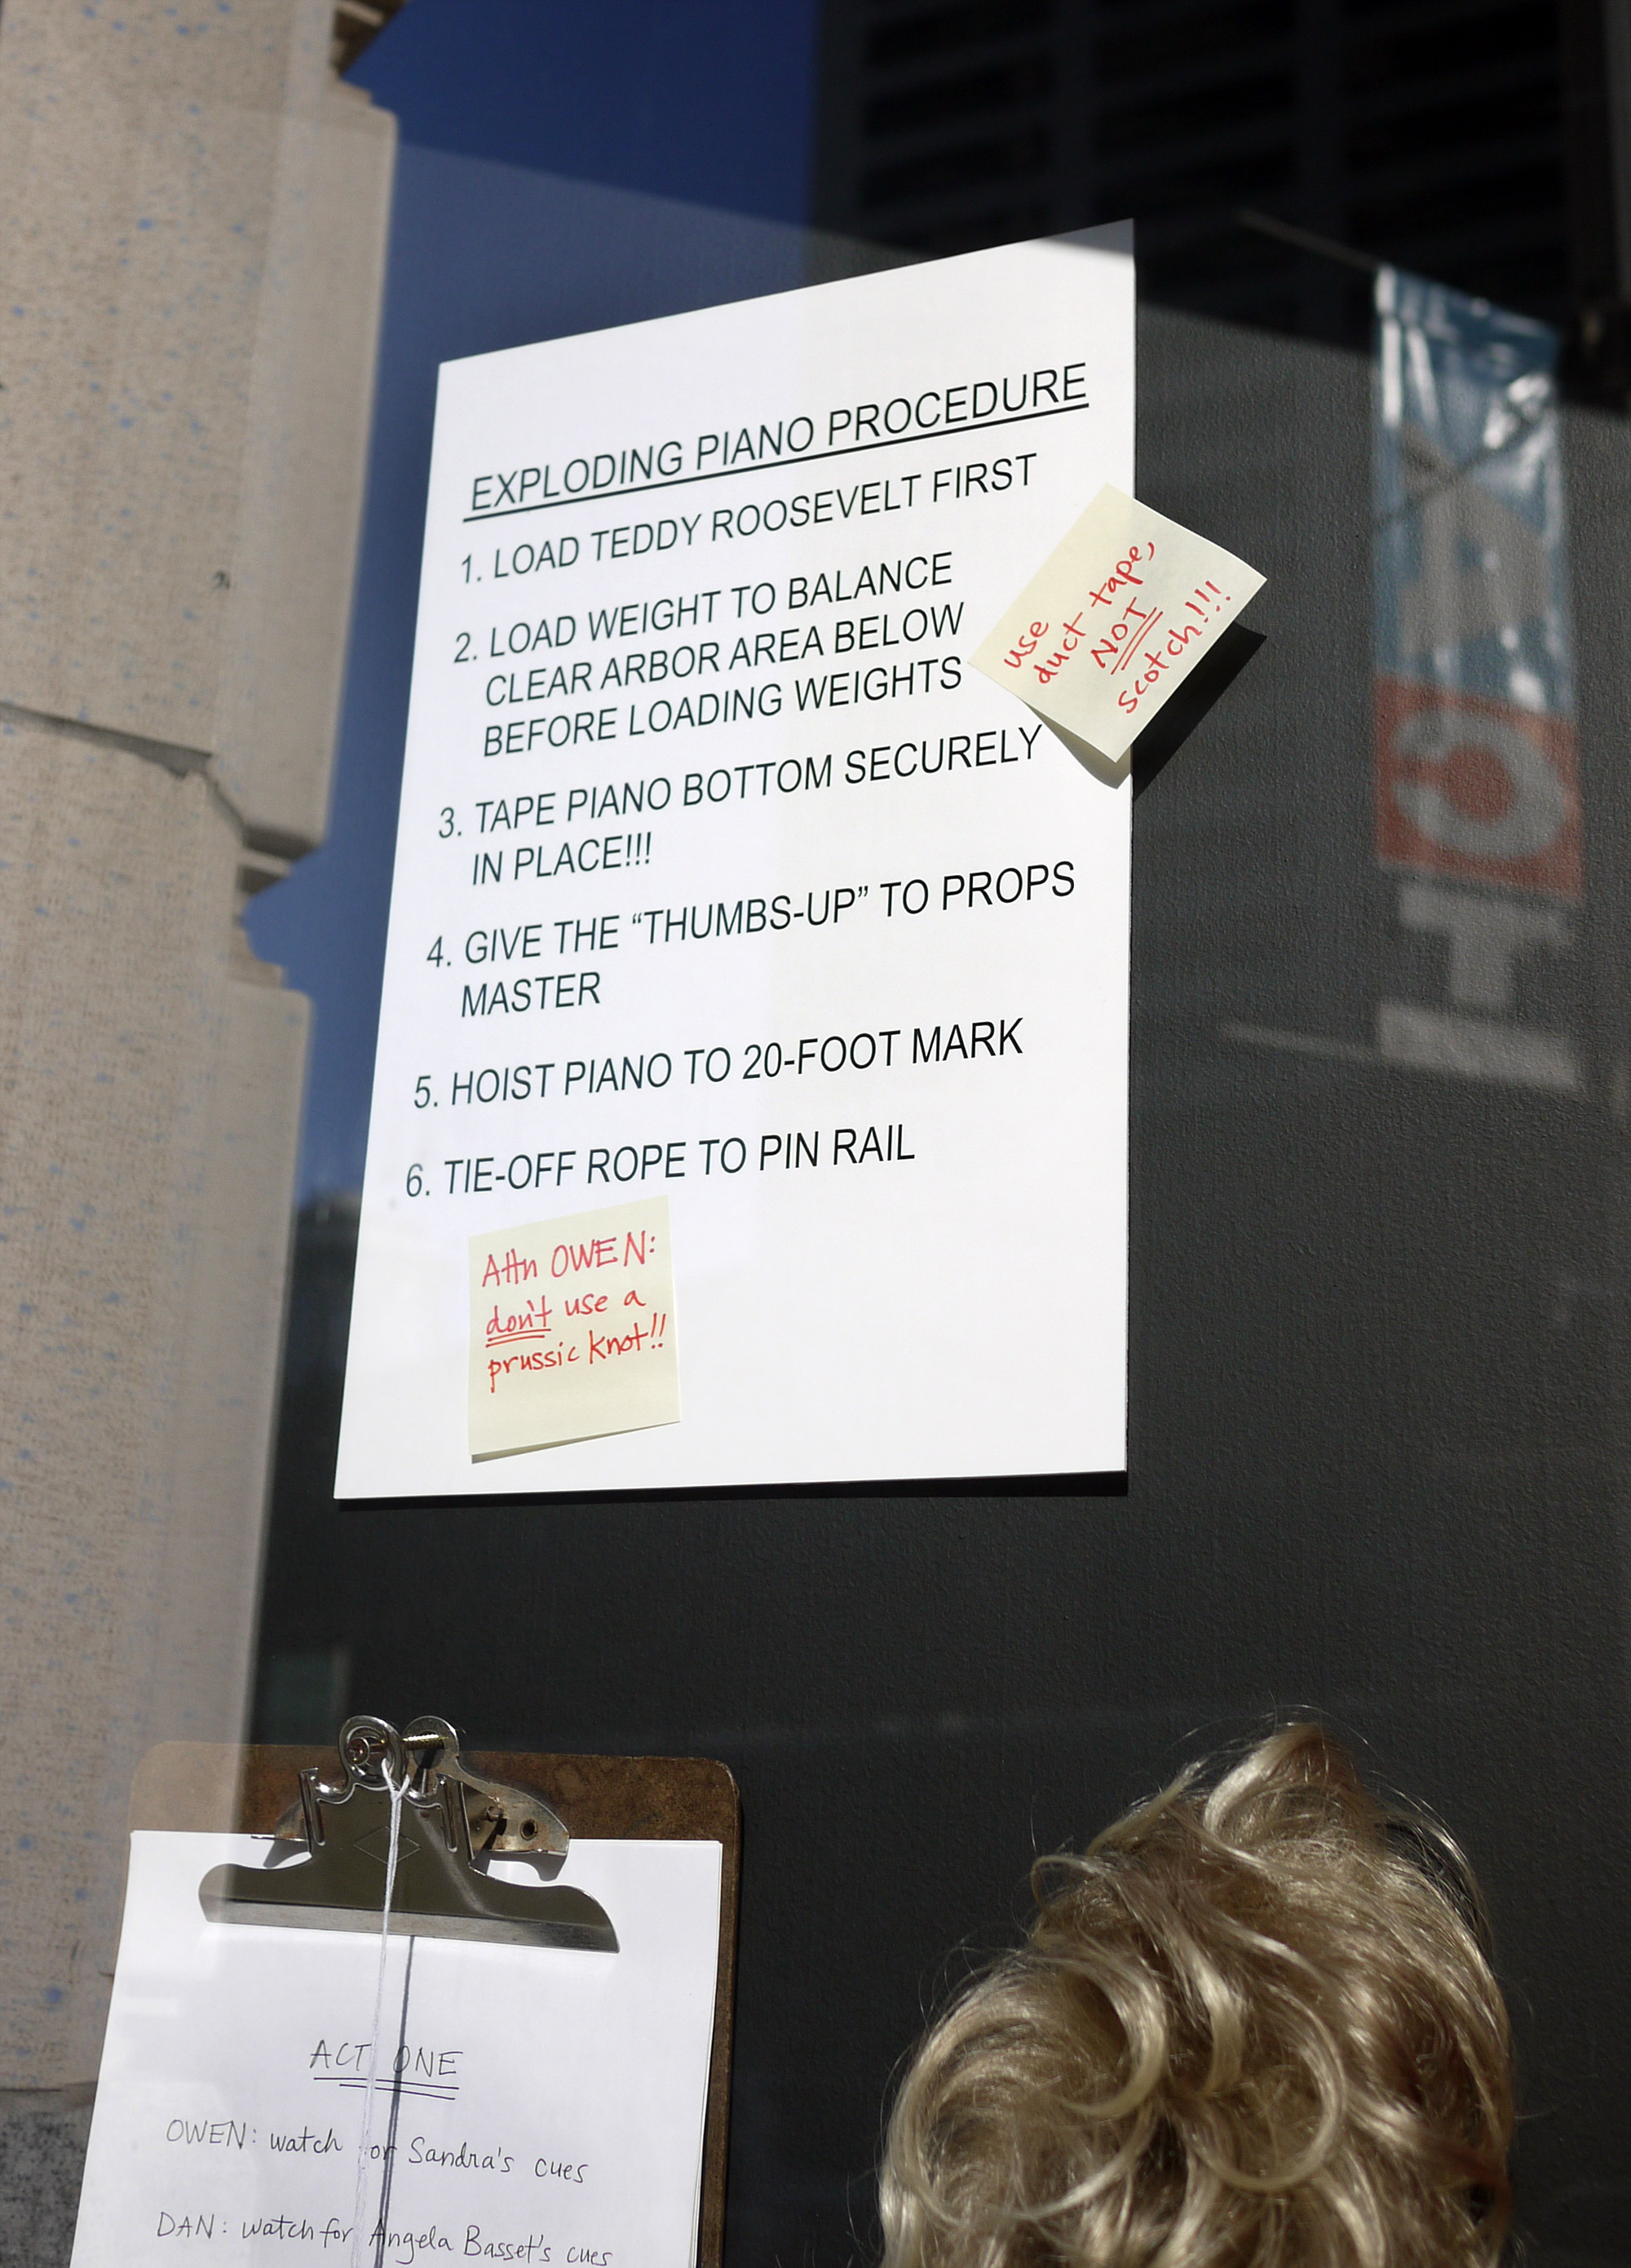 EXPLODING PIANO PROCEDURE
1. LOAD TEDDY ROOSEVELT FIRST
2. LOAD WEIGHT TO BALANCE
CLEAR ARBOR AREA BELOW
BEFORE LOADING WEIGHTS
use
duct tape,
NOT
scotch!!!
3. TAPE PIANO BOTTOM SECURELY
IN PLACE!!!
4. GIVE THE “THUMBS-UP” TO PROPS
MASTER
5. HOIST PIANO TO 20-FOOT MARK
6. TIE-OFF ROPE TO PIN RAIL
Attn OWEN:
don't use a
prussic knot!!
ACT ONE
OWEN: watch for Sandra's cues
DAN: watch for Angela Basset's cues